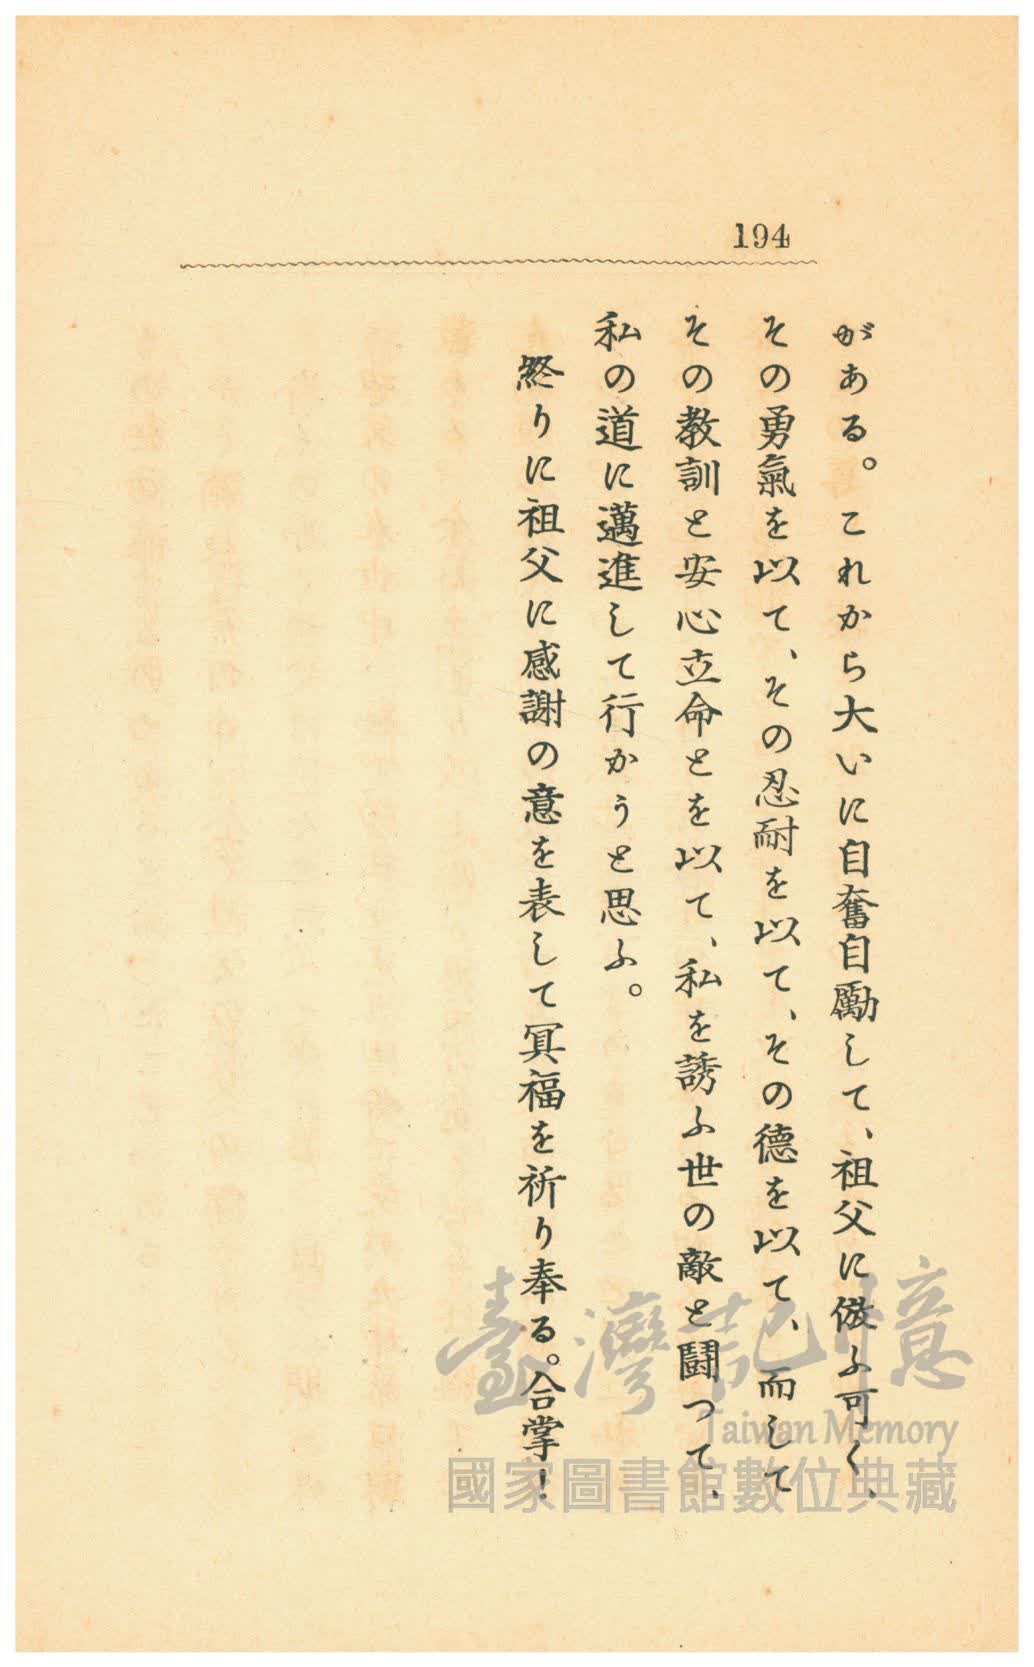 194
がある。これから大いに自奮自勵して、祖父に倣ふ可く、
その勇氣を以て、その忍耐を以て、その德を以て、而して
その教訓と安心立命とを以て、私を誘ふ世の敵と鬪つて、
私の道に邁進して行かうと思ふ。
終りに祖父に感謝の意を表して冥福を祈り奉る。合掌！
臺灣記憶
Taiwan Memory
國家圖書館數位典藏